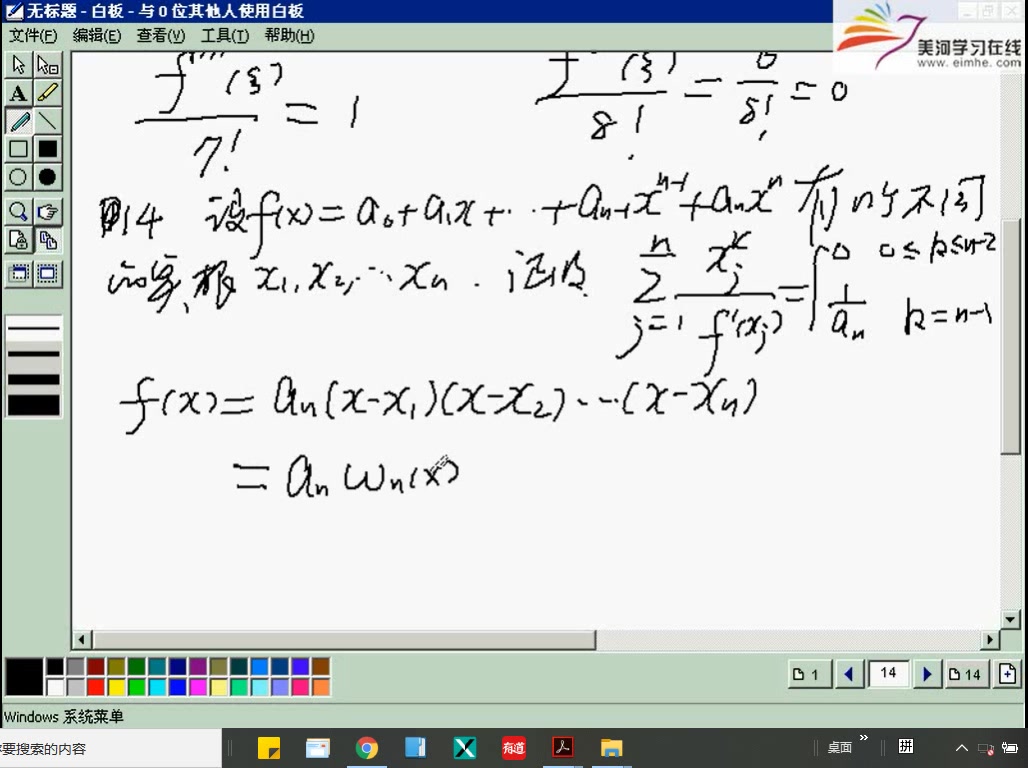 无标题 - 白板 - 与 0 位其他人使用白板
文件(F) 编辑(E) 查看(V) 工具(T) 帮助(H)
美河学习在线
www.eimhe.com
(ξ)/7! = 1
(ξ)/8! = 0/8! = 0
例4 设f(x)=a₀+a₁x+⋯+aₙ₋₁xⁿ⁻¹+aₙxⁿ有n个不同
的实根 x₁,x₂,⋯xₙ. 证明 ∑ⁿⱼ₌₁ xⱼᵏ/f'(xⱼ) = { 0 0≤k≤n-2
1/aₙ k=n-1
f(x)=aₙ(x-x₁)(x-x₂)⋯(x-xₙ)
=aₙωₙ(x)
1 14 14
Windows 系统菜单
要搜索的内容
有道
桌面
拼